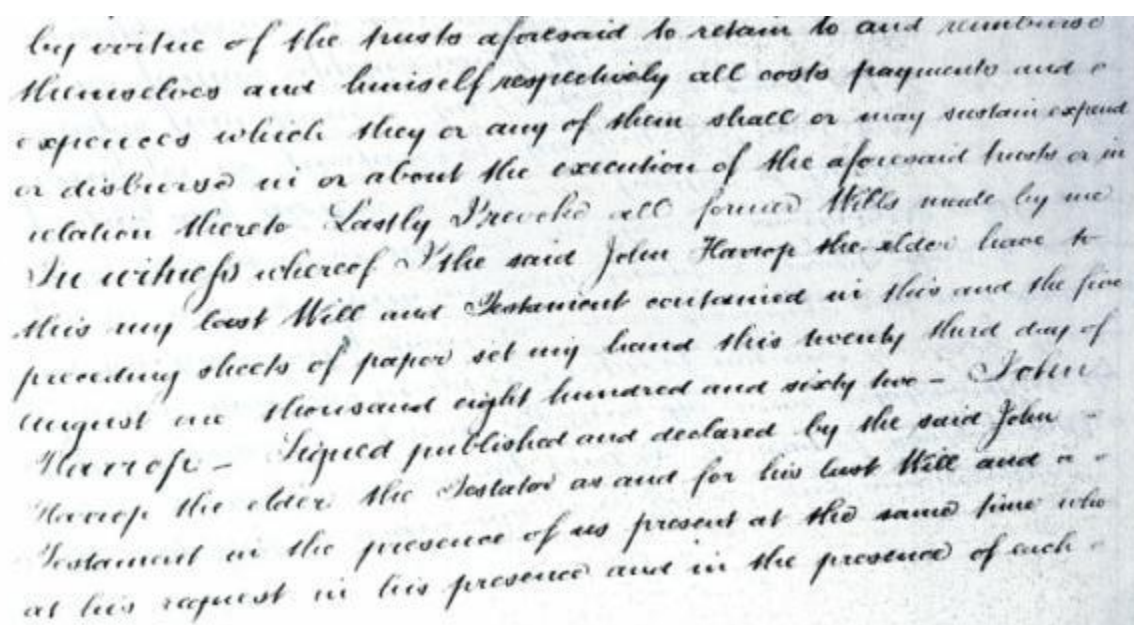 by virtue of the trusts aforesaid to retain to and reimburse
themselves and himself respectively all costs payments and
expences which they or any of them shall or may sustain expend
or disburse in or about the execution of the aforesaid trusts or in
relation thereto Lastly I revoke all former Wills made by me
In witness whereof I the said John Harrop the elder have to
this my last Will and Testament contained in this and the five
preceding sheets of paper set my hand this twenty third day of
August one thousand eight hundred and sixty two – John
Harrop – Signed published and declared by the said John –
Harrop the elder the Testator as and for his last Will and
Testament in the presence of us present at the same time who
at his request in his presence and in the presence of each